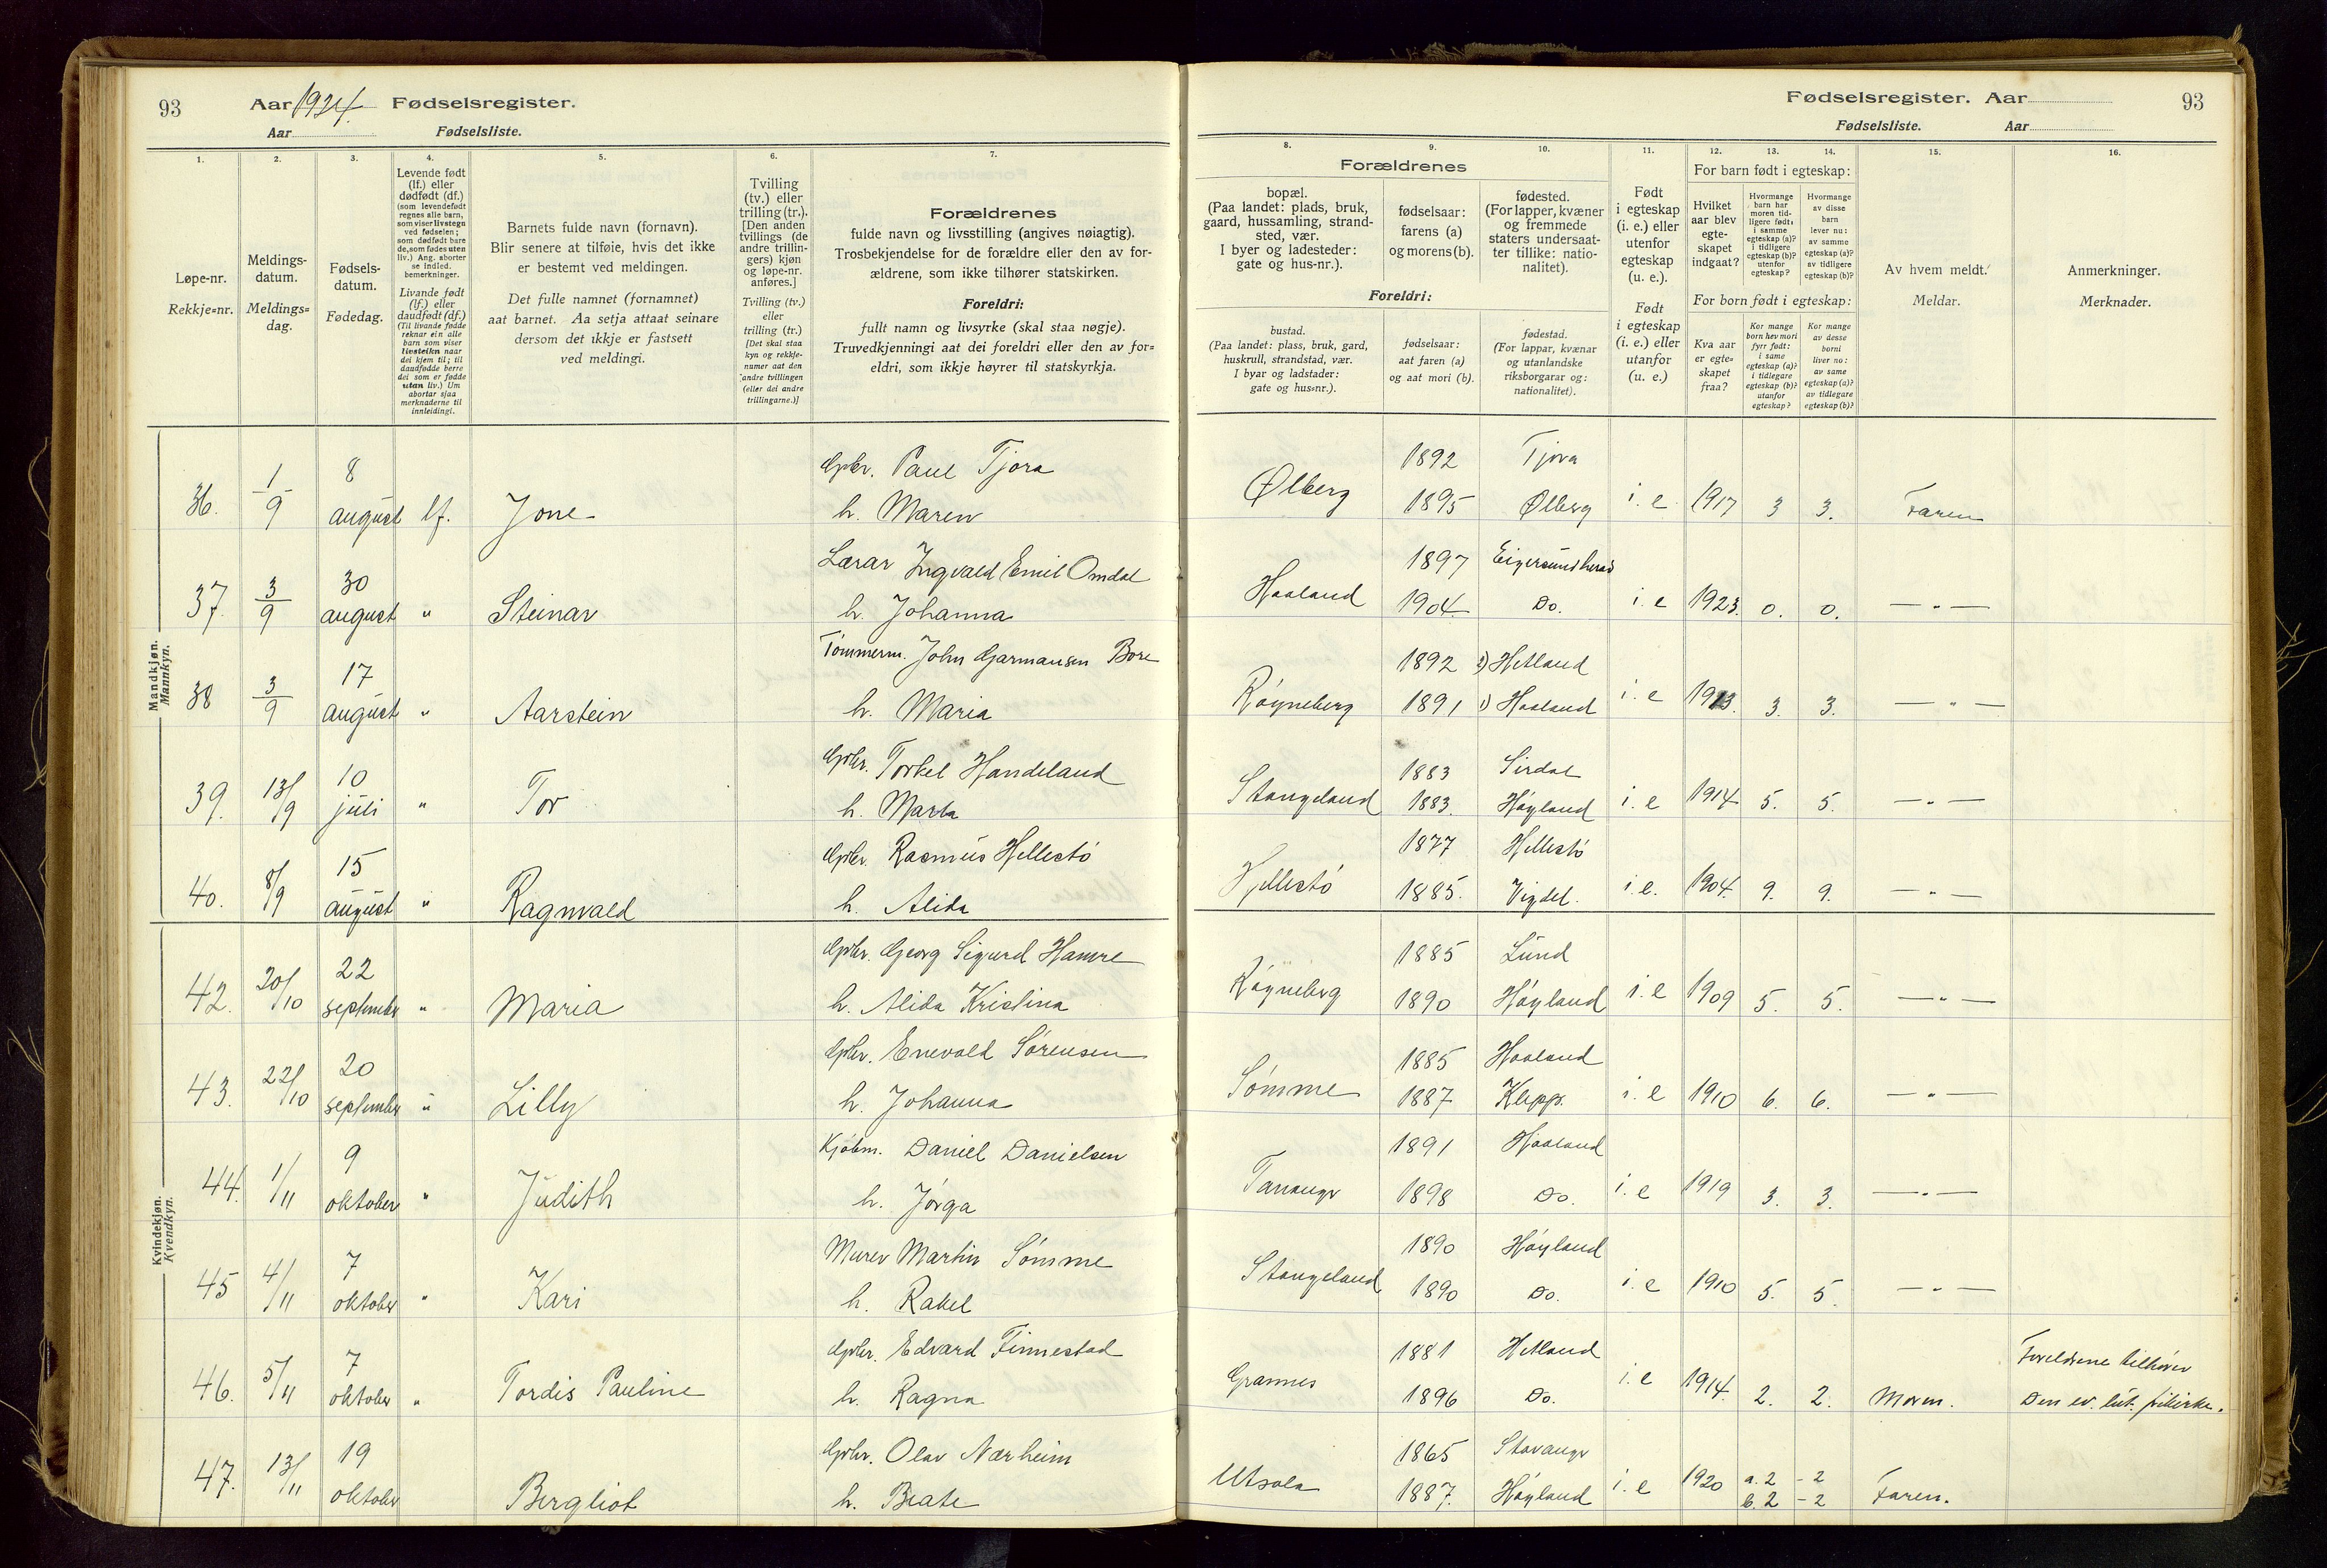 93 Aar 1924. Fødselsregister.
Aar Fødselsliste.
Fødselsregister. Aar 93
Fødselsliste. Aar
1. 2. 3. 4. 5. 6. 7.
Løpe-nr.
Rekkje=nr.
Meldings-
datum.
Meldings=
dag.
Fødsels-
datum.
Fødedag.
Levende født
(lf.) eller
dødfødt (df.)
(som levendefødt
regnes alle barn,
som viser livstegn
ved fødselen;
som dødfødt bare
de, som fødes uten
liv.) Ang. aborter
se indled.
bemerkninger.
Livande født
(lf.) eller
daudfødt (df.)
(Til livande fødde
reknar ein alle
barn som viser
livsteikn naar
dei kjem til; til
daudfødde berre
dei som er fødde
utan liv.) Um
abortar sjaa
merknaderne til
innleidingi.
Barnets fulde navn (fornavn).
Blir senere at tilføie, hvis det ikke
er bestemt ved meldingen.
Det fulle namnet (fornamnet)
aat barnet. Aa setja attaat seinare
dersom det ikkje er fastsett
ved meldingi.
Tvilling
(tv.) eller
trilling (tr.).
[Den anden
tvillings (de
andre trillin-
gers) kjøn
og løpe-nr.
anføres.]
Tvilling (tv.)
eller
trilling (tr.)
[Det skal staa
kyn og rekkje-
numer aat den
andre tvillingen
(eller dei andre
trillingarne.)]
Forældrenes
fulde navn og livsstilling (angives nøiagtig).
Trosbekjendelse for de forældre eller den av for-
ældrene, som ikke tilhører statskirken.
Foreldri:
fullt namn og livsyrke (skal staa nøgje).
Truvedkjenningi aat dei foreldri eller den av for=
eldri, som ikkje høyrer til statskyrkja.
8. 9. 10. 11. 12. 13. 14. 15. 16.
Forældrenes
bopæl.
(Paa landet: plads, bruk,
gaard, hussamling, strand-
sted, vær.
I byer og ladesteder:
gate og hus-nr.).
fødselsaar:
farens (a)
og morens (b).
fødested.
(For lapper, kvæner
og fremmede
staters undersaat-
ter tillike: natio-
nalitet).
Foreldri:
bustad.
(Paa landet: plass, bruk, gard,
huskrull, strandstad, vær.
I byar og ladstader:
gate og hus=nr.).
fødselsaar:
aat faren (a)
og aat mori (b).
fødestad.
(For lappar, kvænar
og utanlandske
riksborgarar og:
nationalitet).
Født
i egteskap
(i. e.) eller
utenfor
egteskap
(u. e.).
Født
i egteskap
(i. e.) eller
utanfor
(u. e.)
For barn født i egteskap:
Hvilket
aar blev
egte-
skapet
indgaat?
Hvormange
barn har
moren tid-
ligere født:
i samme
egteskap (a)?
i tidligere
egteskap (b)?
utenfor
egteskap?
Hvormange
av disse
barn
lever nu:
av samme
egteskap (a)?
av tidligere
egteskap (b)?
For born født i egteskap:
Kva aar
er egte=
skapet
fraa?
Kor mange
born hev mori
fyrr født:
i same
egteskap (a)?
i tidlegare
egteskap (b)?
utanfor
egteskap?
Kor mange
av desse
borni
liver no:
av same
egteskap (a)?
av tidlegare
egteskap (b)?
Av hvem meldt.
Meldar.
Anmerkninger.
Merknader.
Mandkjøn.
Mannkyn.
36. 1/9 8 august lf. Jone Gpbr. Paul Tjora Ølberg 1892 Tjora i. e 1917 3 3. Faren
h. Maren 1895 Ølberg
37. 3/9 30 august " Steinar Lærar Ingvald Emil Omdal Haaland 1897 Eigersundherad i. e 1923. 0. 0. — " —
h. Johanna 1904 Do.
38 3/9 17 august " Aarstein Tømmerm. John Garmansen Bore Røyneberg 1892 2) Hetland i. e 1913. 3. 3. — " —
h. Maria 1891 1) Haaland
39. 13/9 10 juli " Tor Gpbr. Torkel Handeland Stangeland 1883 Sirdal i. e 1914 5. 5. — " —
h. Marta 1883. Høyland
40. 8/9 15 august " Ragnvald Gpbr. Rasmus Hellestø Hellestø 1877 Hellestø i. e. 1904. 9. 9. — " —
h. Alida 1885. Vigdel.
Kvindekjøn.
Kvendkyn.
42. 20/10 22 september " Maria Gpbr. Georg Sigurd Hamre Røyneberg 1885 Lund i. e 1909 5. 5. — " —
h. Alida Kristina 1890 Høyland
43. 22/10 20 september " Lilly Gpbr. Enevald Sørensen Sømme 1885 Haaland i. e 1910 6. 6. — " —
h. Johanna 1887 Klepp.
44. 1/11 9 oktober " Judith Kjøbm. Daniel Danielsen Tananger 1891 Haaland i. e 1919 3. 3. — " —
h. Jørga 1898 Do.
45 4/11 7 oktober " Kari Murer Martin Sømme Stangeland 1890 Høyland i. e 1910 5. 5. — " —
h. Rakel 1890 Do.
46. 5/11 7 oktober " Tordis Pauline Gpbr. Edvard Finnestad Grannes 1881 Hetland i. e 1914. 2. 2. Moren. Foreldrene tilhører
h. Ragna 1896 Do. Den ev. lut. frikirke.
47. 13/11 19 oktober Bergliot Gpbr. Olav Nærheim Utsola 1865 Stavanger i. e 1920 a. 2 - 2 Faren.
h. Beate 1887. Høyland b. 2 - 2